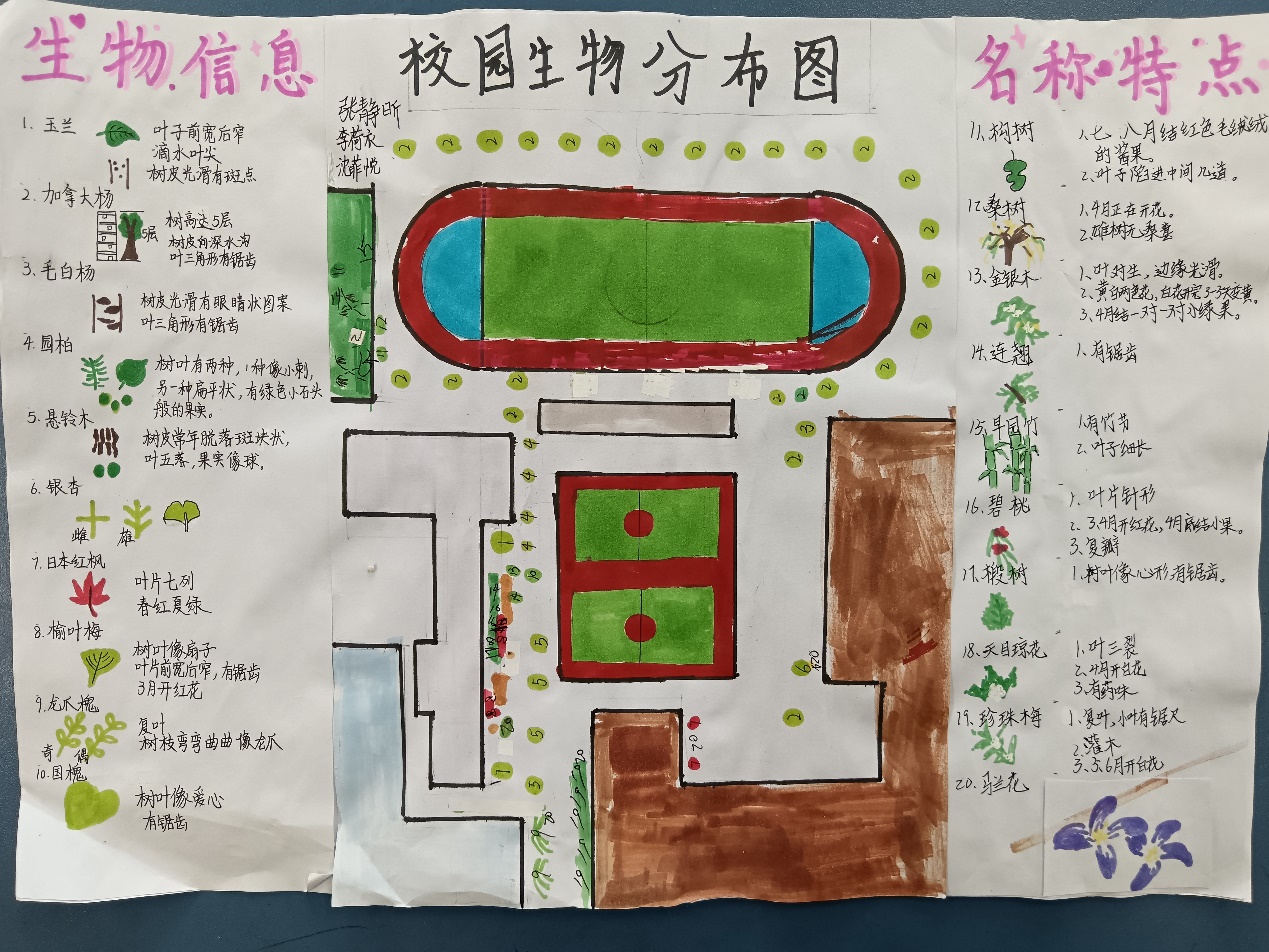 生物信息
1. 玉兰
叶子前宽后窄
滴水叶尖
树皮光滑有斑点
2. 加拿大杨
5层
树高达5层
树皮向深水沟
叶三角形有锯齿
3. 毛白杨
树皮光滑有眼睛状图案
叶三角形有锯齿
4. 园柏
树叶有两种，1种像小刺，
另一种扁平状，有绿色小石头
般的果实。
5. 悬铃木
树皮常年脱落斑块状，
叶五落，果实像球。
6. 银杏
雌 雄
7. 日本红枫
叶片七列
春红夏绿
8. 榆叶梅
树叶像扇子
叶片前宽后窄，有锯齿
3月开红花
9. 龙爪槐
复叶
树枝弯弯曲曲像龙爪
奇 偶
10. 国槐
树叶像爱心
有锯齿
校园生物分布图
张静昕
李荷永
沈菲悦
2 2 2 2 2 2 2 2 2 2 2 2
2
2
2
2
2
15
2
12
11
2 2 2 2 2 2
2
3
2
4
4
4
1 4
5
5
5
1 5
6
20
2
20
名称特点
11. 构树
1. 七、八月结红色毛绒绒
的酱果
2. 叶子陷进中间几道。
12. 桑树
1. 4月正在开花。
2. 雄树无桑葚
13. 金银木
1. 叶对生，边缘光滑。
2. 黄白两色花，白花开完3-5天变黄。
3. 4月结一对一对小绿果。
14. 连翘
1. 有锯齿
15. 早园竹
1. 有竹节
2. 叶子细长
16. 碧桃
1. 叶片针形
2. 3.4月开红花，4月底结小果。
3. 复瓣
17. 椴树
1. 树叶像心形，有锯齿。
18. 天目琼花
1. 叶三裂
2. 4月开白花
3. 有药味
19. 珍珠梅
1. 复叶，小叶有锯尺
2. 灌木
3. 5.6月开白花
20. 马兰花